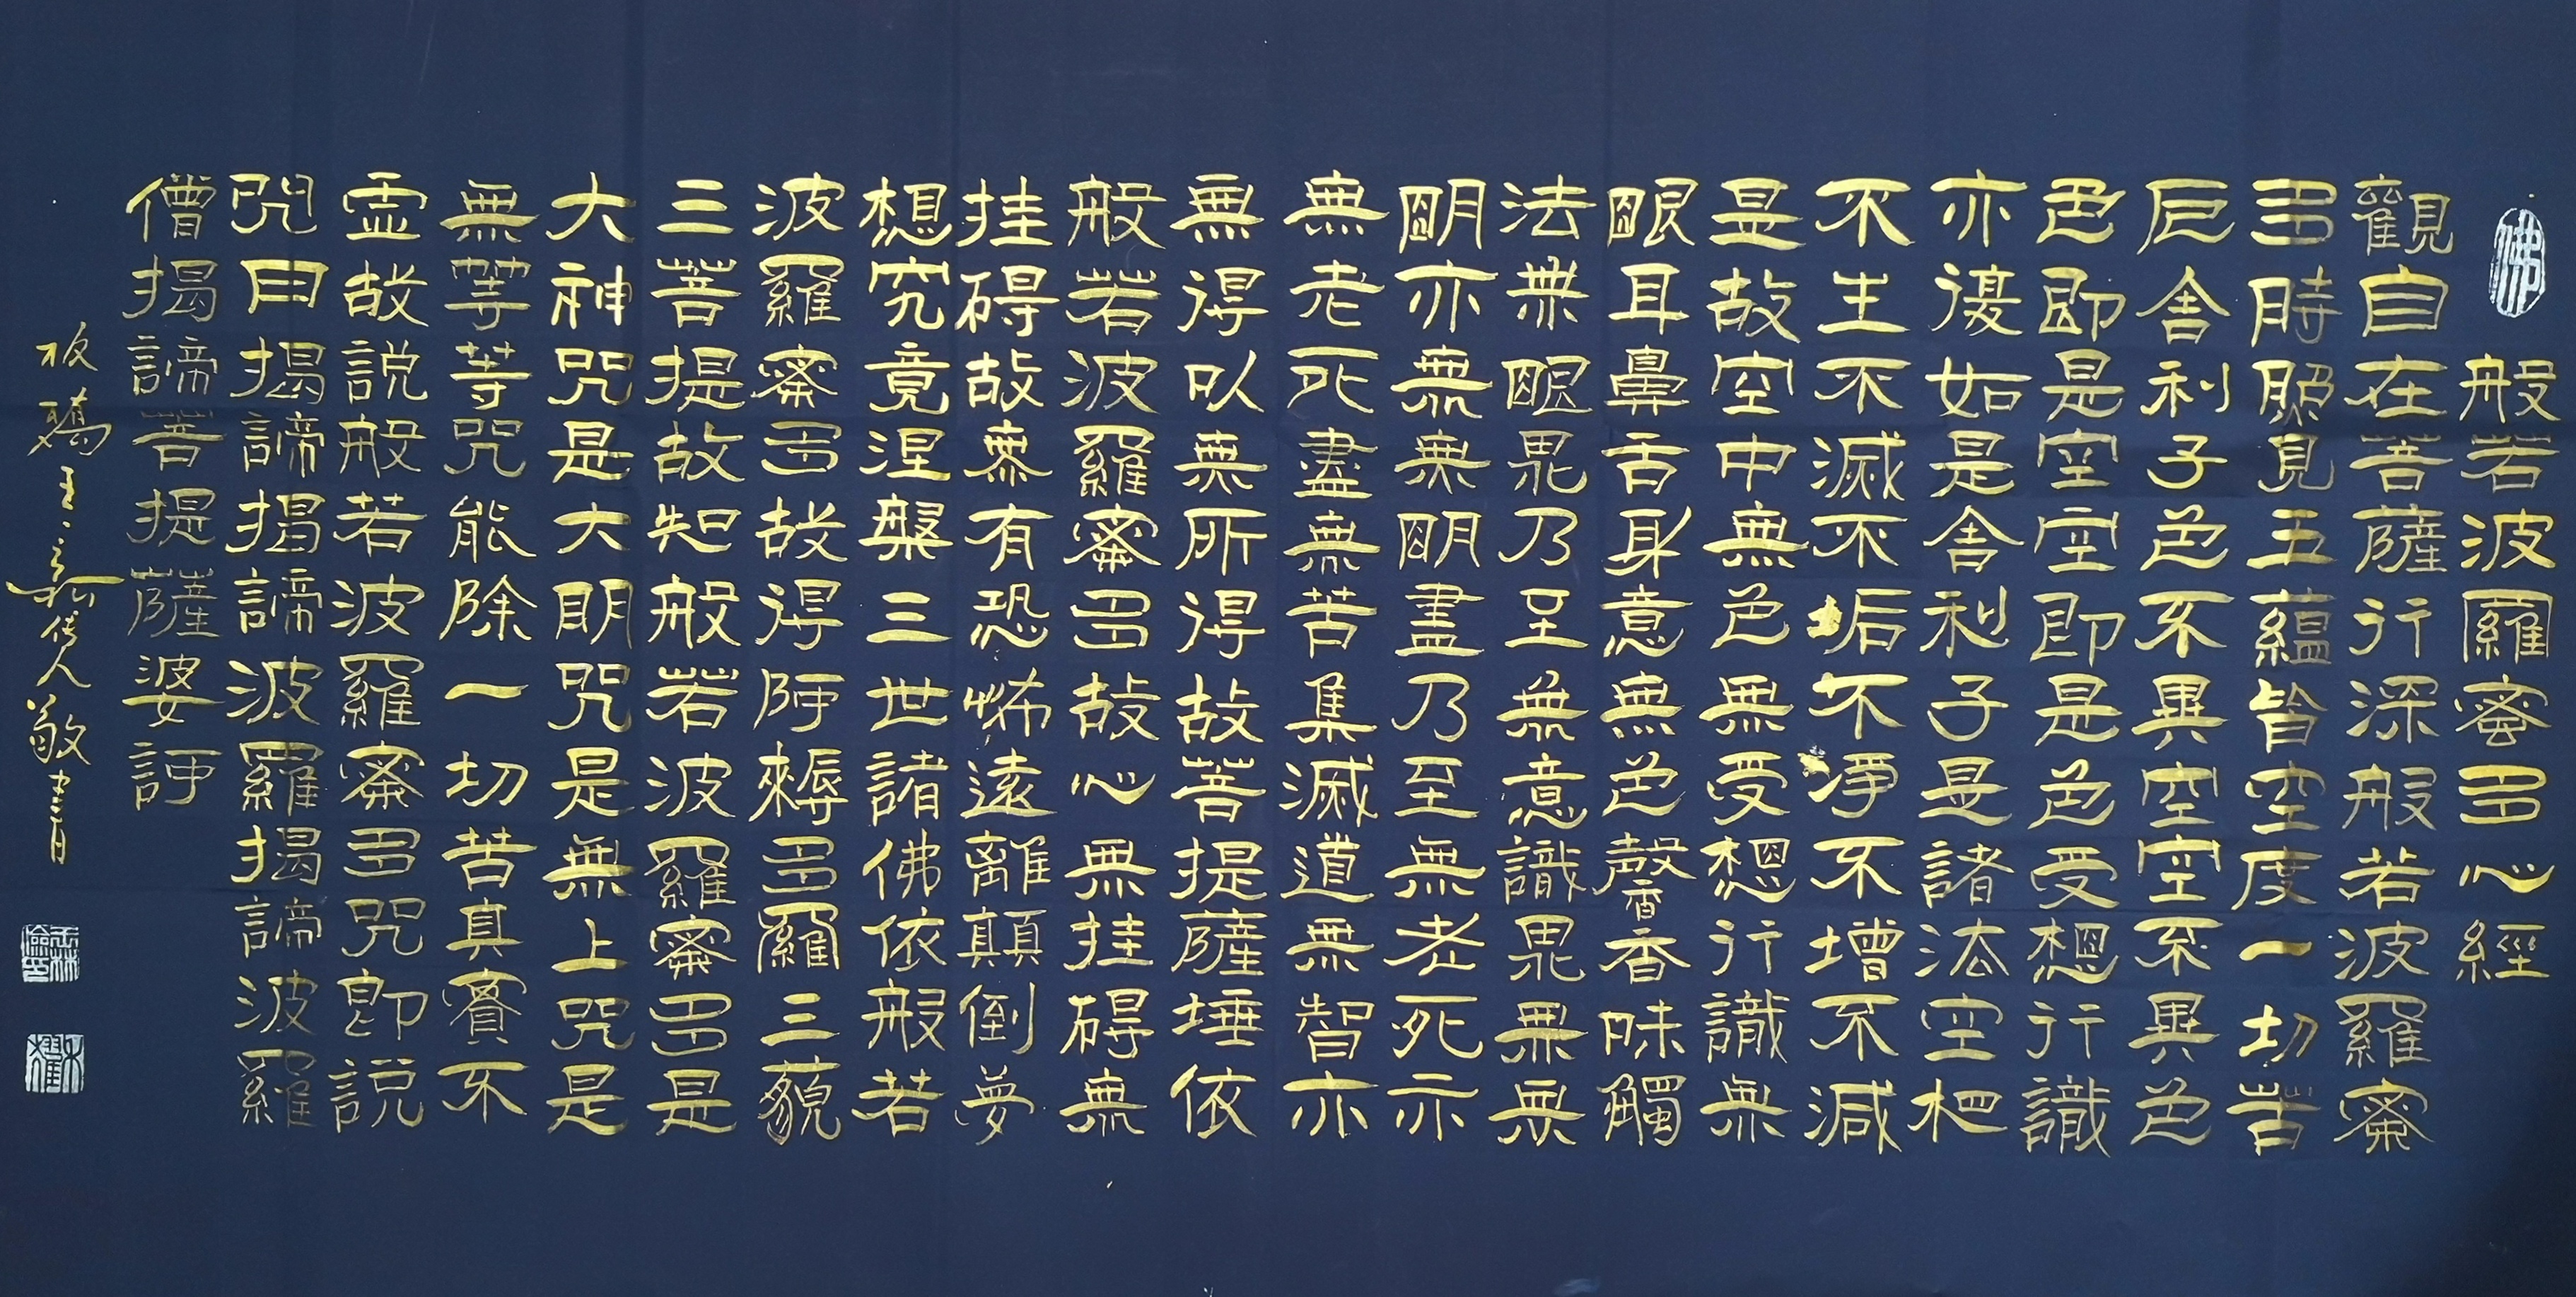 佛
般若波羅蜜多心經
觀自在菩薩行深般若波羅蜜
多時照見五蘊皆空度一切苦
厄舍利子色不異空空不異色
色即是空空即是色受想行識
亦復如是舍利子是諸法空相
不生不滅不垢不淨不增不減
是故空中無色無受想行識無
眼耳鼻舌身意無色馨香味觸
法無眼界乃至無意識界無無
明亦無無明盡乃至無老死亦
無老死盡無苦集滅道無智亦
無得以無所得故菩提薩埵依
般若波羅蜜多故心無挂碍無
挂碍故無有恐怖遠離顛倒夢
想究竟涅槃三世諸佛依般若
波羅蜜多故得阿耨多羅三藐
三菩提故知般若波羅蜜多是
大神咒是大明咒是無上咒是
無等等咒能除一切苦真實不
虛故說般若波羅蜜多咒即說
咒曰揭諦揭諦波羅揭諦波羅
僧揭諦菩提薩婆訶
板橋 傳人敬書